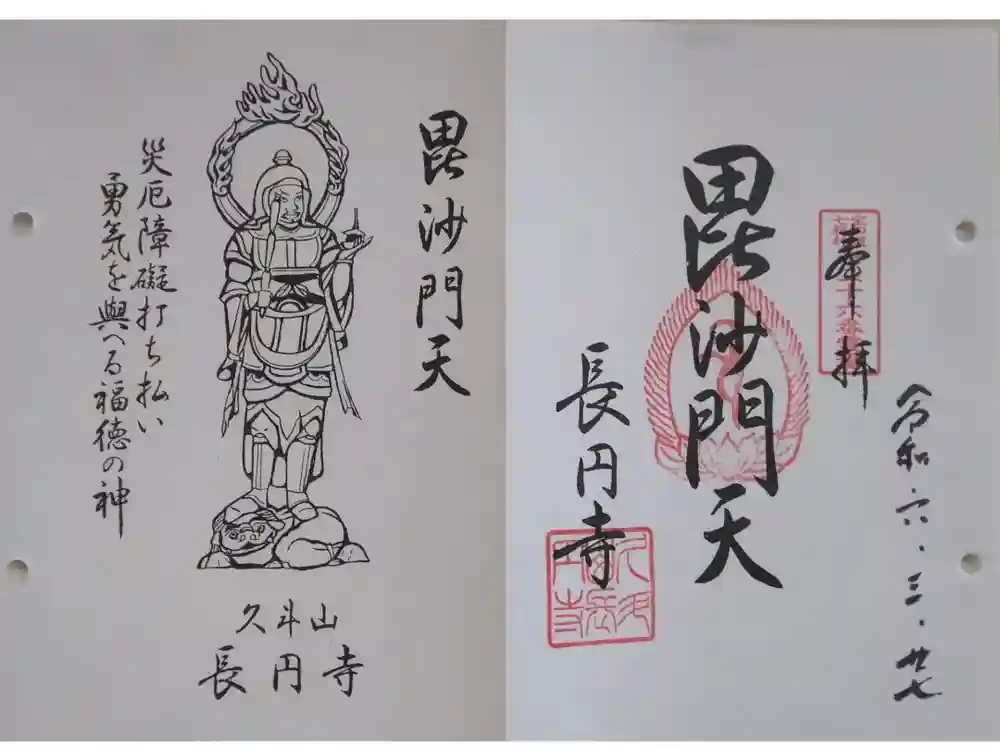 毘沙門天
災厄障礙打ち払い
勇気を與へる福徳の神
久斗山
長円寺
令和六.三.廿七
奉拝
毘沙門天
長円寺